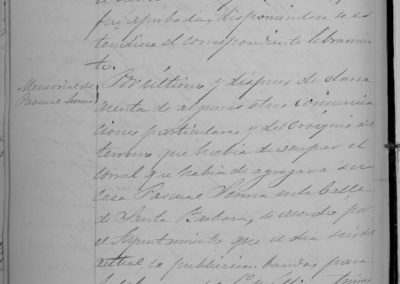 fué aprobada, disponiéndose se es
tendiese el correspondiente libramien
to.
Memorial de
Pascual
Por último y despues de darse
cuenta de algunas otras comunica
ciones particulares y del croquis del
terreno que habia de ocupar el
corral que habia de agregar á su
casa Pascual en la Calle
de Santa Barbara, se acordó por
el Ayuntamiento que el dia seis del
actual se publicasen bandos para